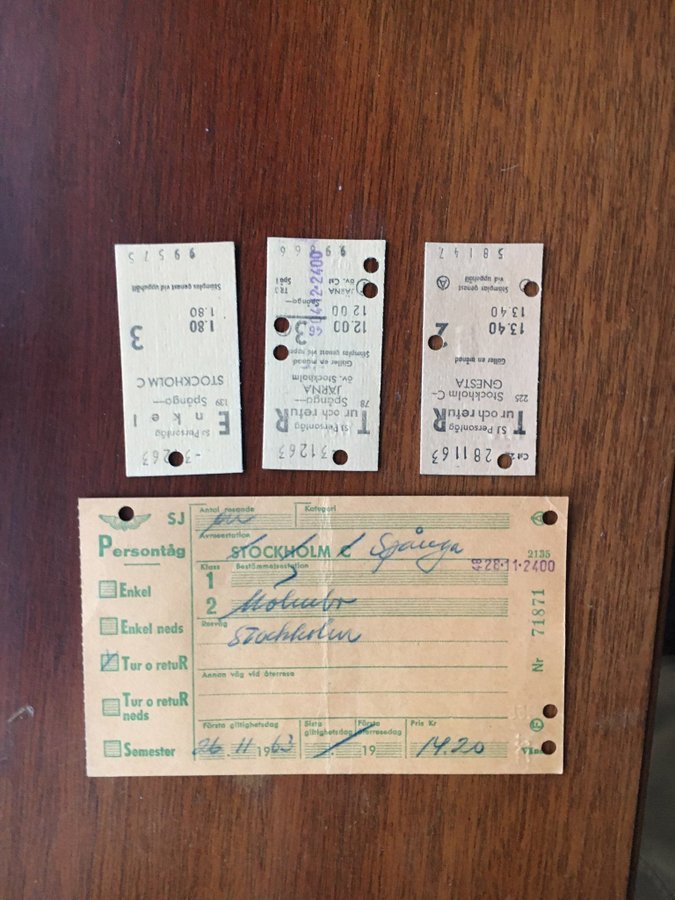 -3 1263
SJ Persontåg
Enkel
139 Spånga—
STOCKHOLM C
3
1.80
1.80
Stämplas genast vid uppehåll
99575
-31263
SJ Persontåg
Tur och retuR
78 Spånga—
JÄRNA
öv. Stockholm
Gäller en månad
Stämplas genast vid uppe
3
12.00
12.00
Spånga—
JÄRNA
öv. Cst
99866
281163
SJ Persontåg
Tur och retuR
225 Stockholm C-
GNESTA
Gäller en månad
2
13.40
13.40
Stämplas genast
vid uppehåll
58142
SJ
Persontåg
Enkel
Enkel neds
Tur o retuR
Tur o retuR
neds
Semester
Antal resande
Kategori
Avresestation
STOCKHOLM C Spånga
2135
Klass
Bestämmelsestation
28·11·2400
1
2
Molnbo
Resväg
Stockholm
Annan väg vid återresa
Nr 71871
Första giltighetsdag
Sista giltighetsdag
Första återresedag
Pris Kr
26 11 1963
19
14.20